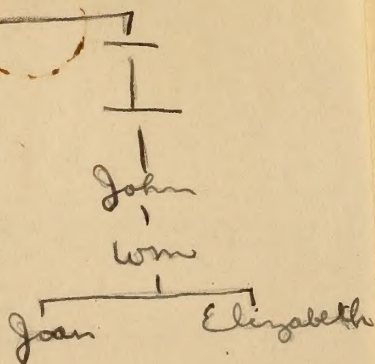 John
Wm
Joan Elizabeth